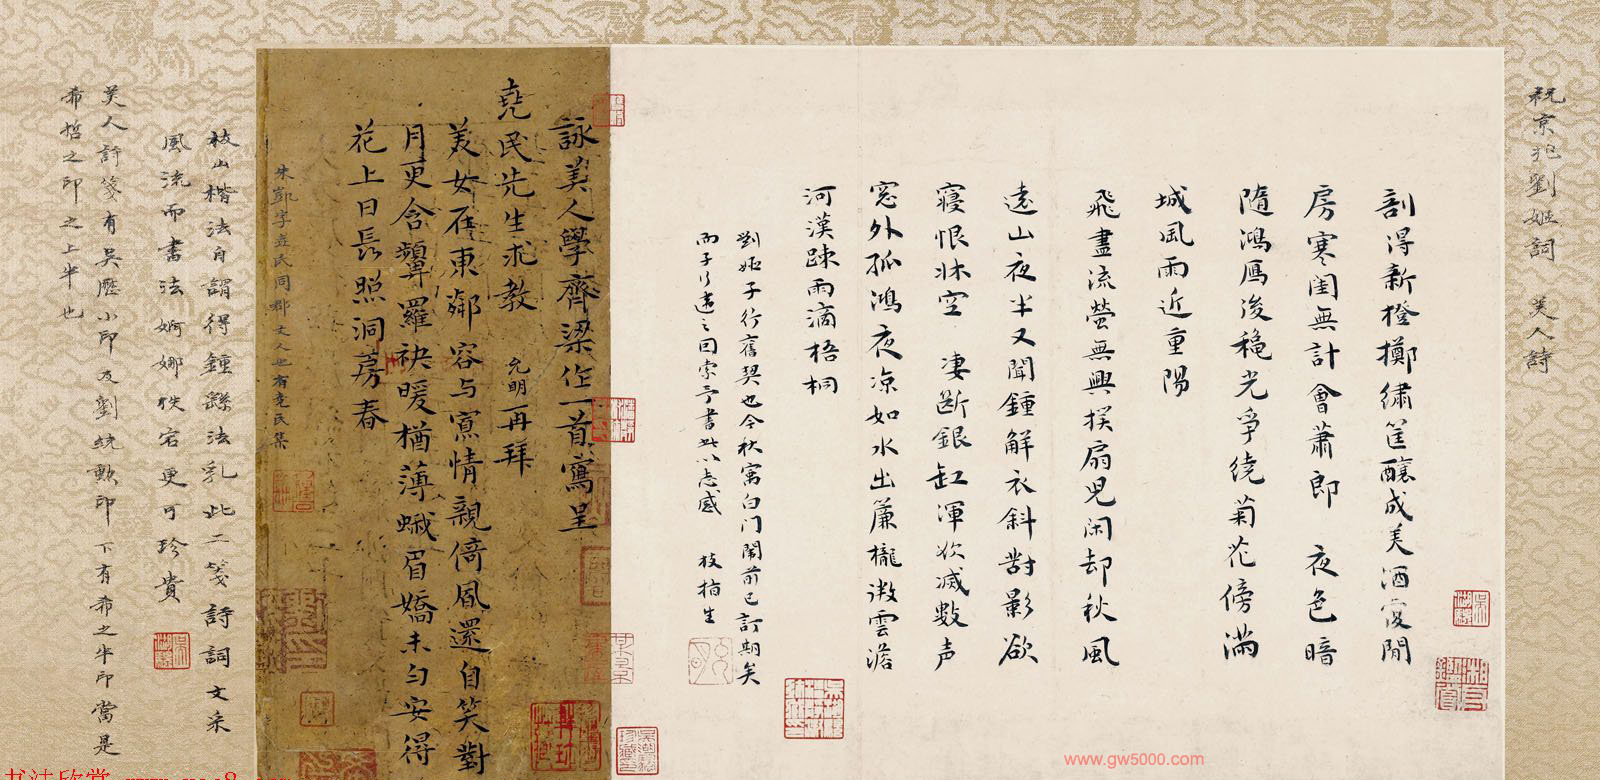 祝京兆劉姬詞 美人詩
剖得新橙擲繡筐釀成美酒宴閒
房寒閨無計會蕭郎 夜色暗
隨鴻鴈後穐光爭繞菊花傍滿
城風雨近重陽
飛盡流螢無興撲扇兒閑却秋風
遠山夜半又聞鍾解衣斜對影欲
寢恨牀空 凄斷銀缸渾欲滅數声
窓外孤鴻夜凉如水出簾櫳微雲澹
河漢踈雨滴梧桐
劉姬子行舊契也今秋寓白门闈前已訂期矣
而子行遣之因索予書此以志感 枝指生
詠美人學齊梁作一首寫呈
堯民先生求教 允明再拜
美女在東鄰容与寫情親倚風還自笑對
月更含顰羅袂暖猶薄蛾眉嬌未匀安得
花上日長照洞房春
朱凱字堯民同郡文人也有堯民集
枝山楷法自謂得鍾繇法乳此二箋詩詞文采
風流而書法婀娜佚宕更可珍貴
美人詩箋有吳歷小印及劉統勲印下有希之半印當是
希哲之印之上半也
书法欣赏
www.gw5000.com